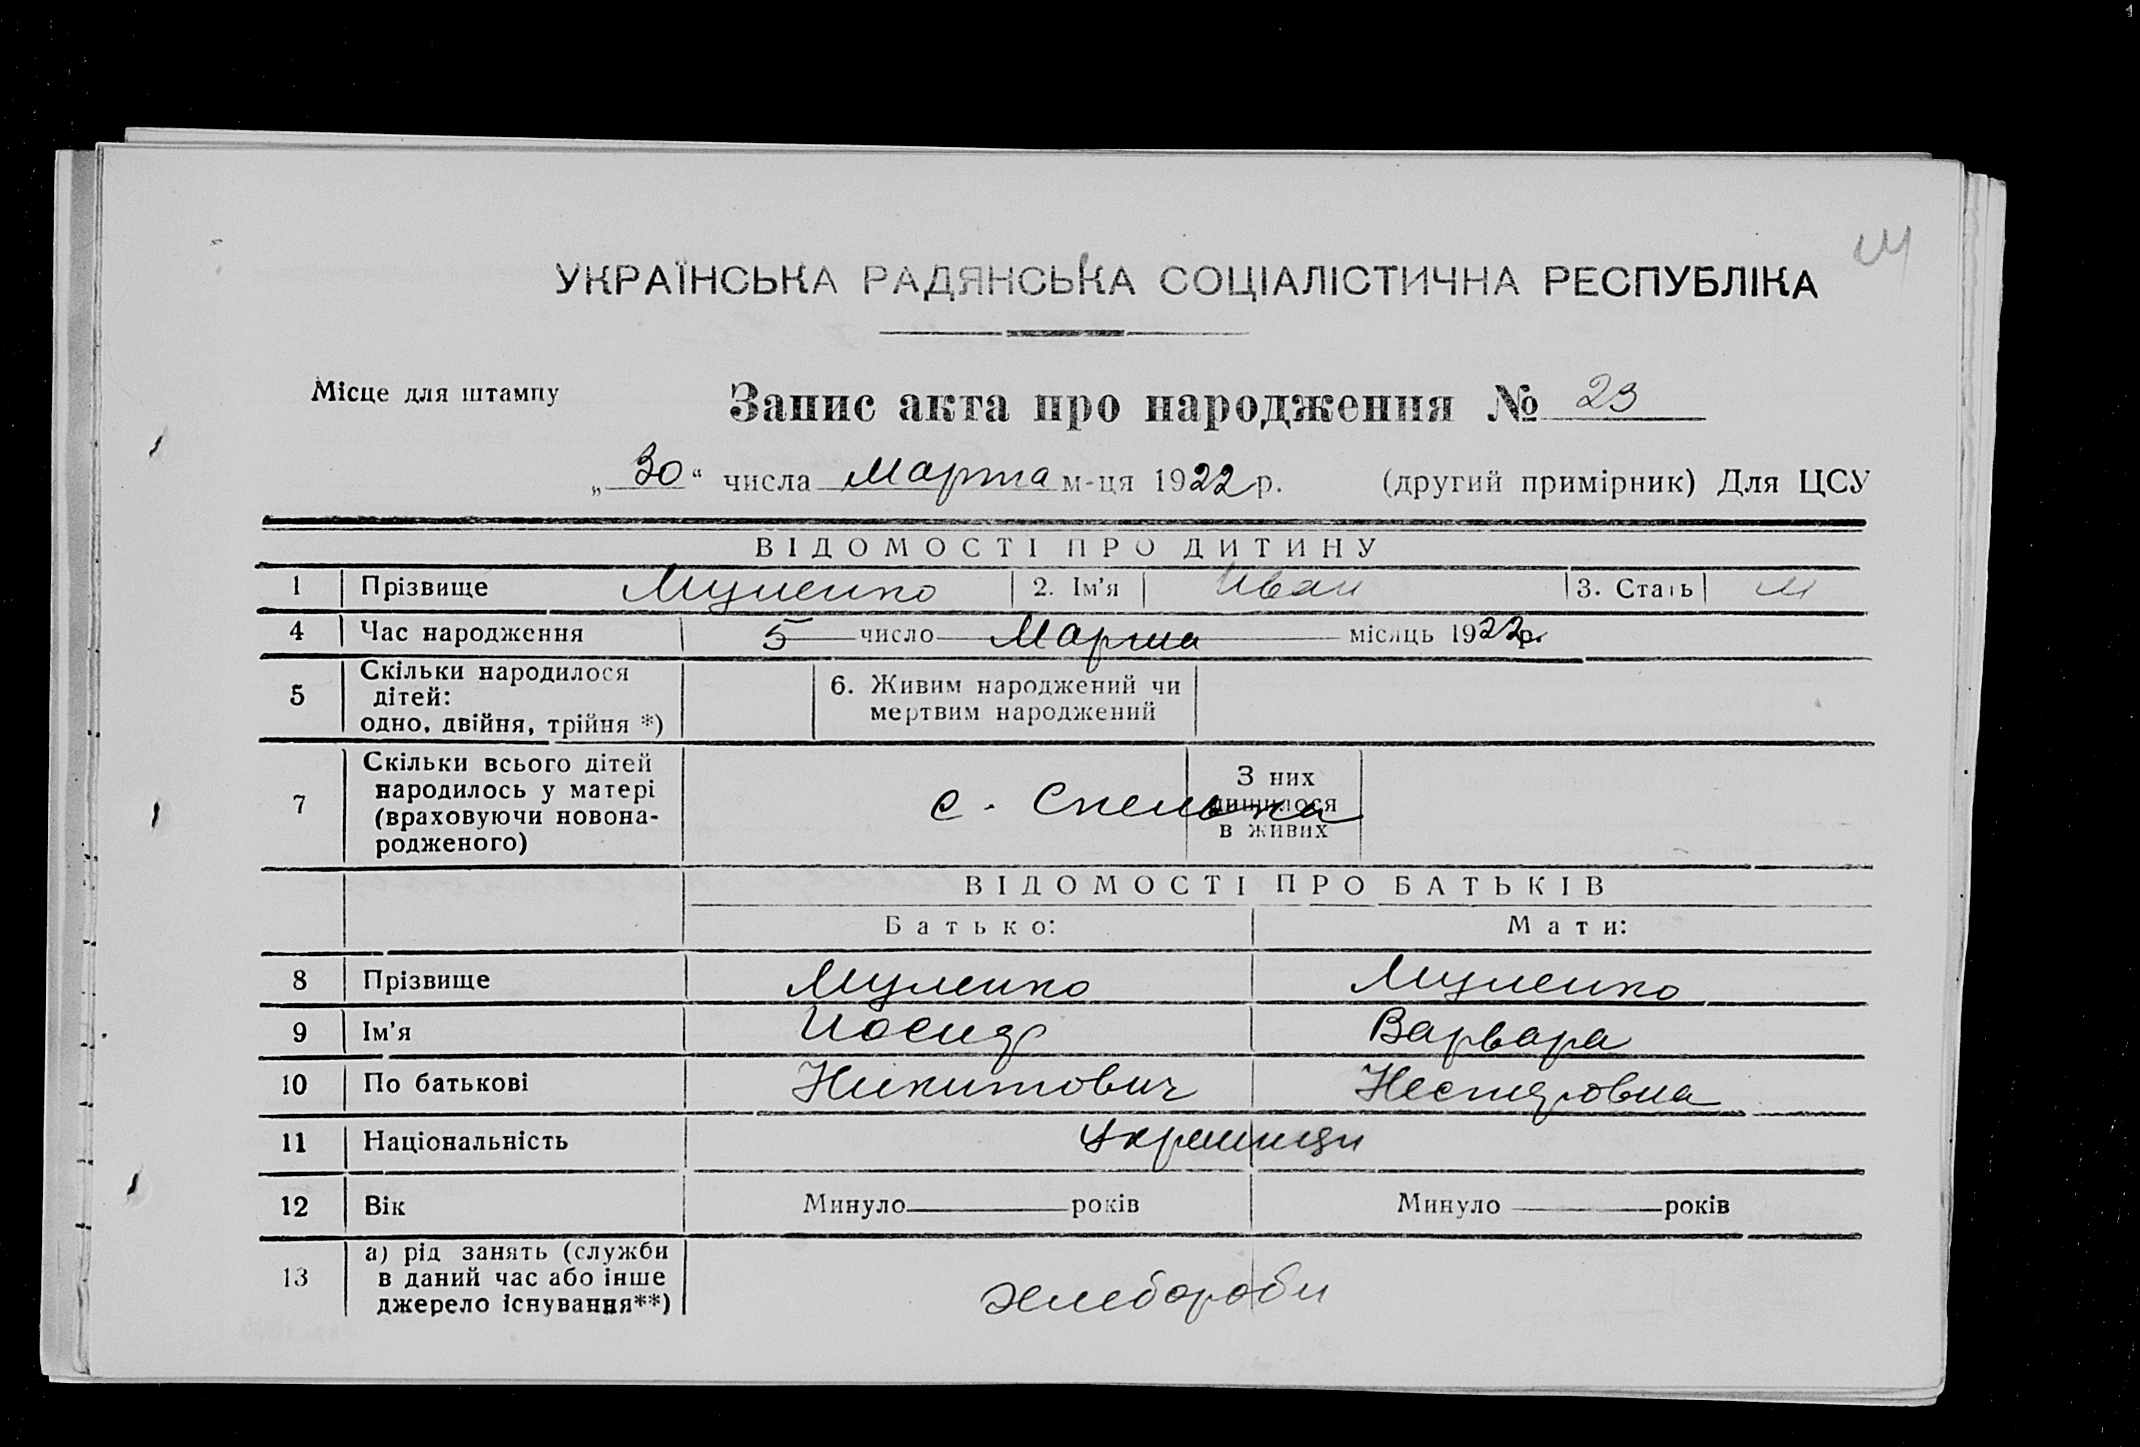 УКРАЇНСЬКА РАДЯНСЬКА СОЦІАЛІСТИЧНА РЕСПУБЛІКА
Місце для штампу
Запис акта про народження № 23
„30“ числа Марта м-ця 1922 р. (другий примірник) Для ЦСУ
ВІДОМОСТІ ПРО ДИТИНУ
1 Прізвище Муленко 2. Ім'я Иван 3. Стать м
4 Час народження 5 число Марта місяць 1922р.
5 Скільки народилося дітей: одно, двійня, трійня *)
6. Живим народжений чи мертвим народжений
7 Скільки всього дітей народилось у матері (враховуючи новонародженого)
с. Спелька
З них лишилося в живих
ВІДОМОСТІ ПРО БАТЬКІВ
Батько: Мати:
8 Прізвище Муленко Муленко
9 Ім'я Иосиф Варвара
10 По батькові Никитович Нестеровна
11 Національність Украинцы
12 Вік Минуло років Минуло років
13 а) рід занять (служби в даний час або інше джерело існування**)
Хлебороби